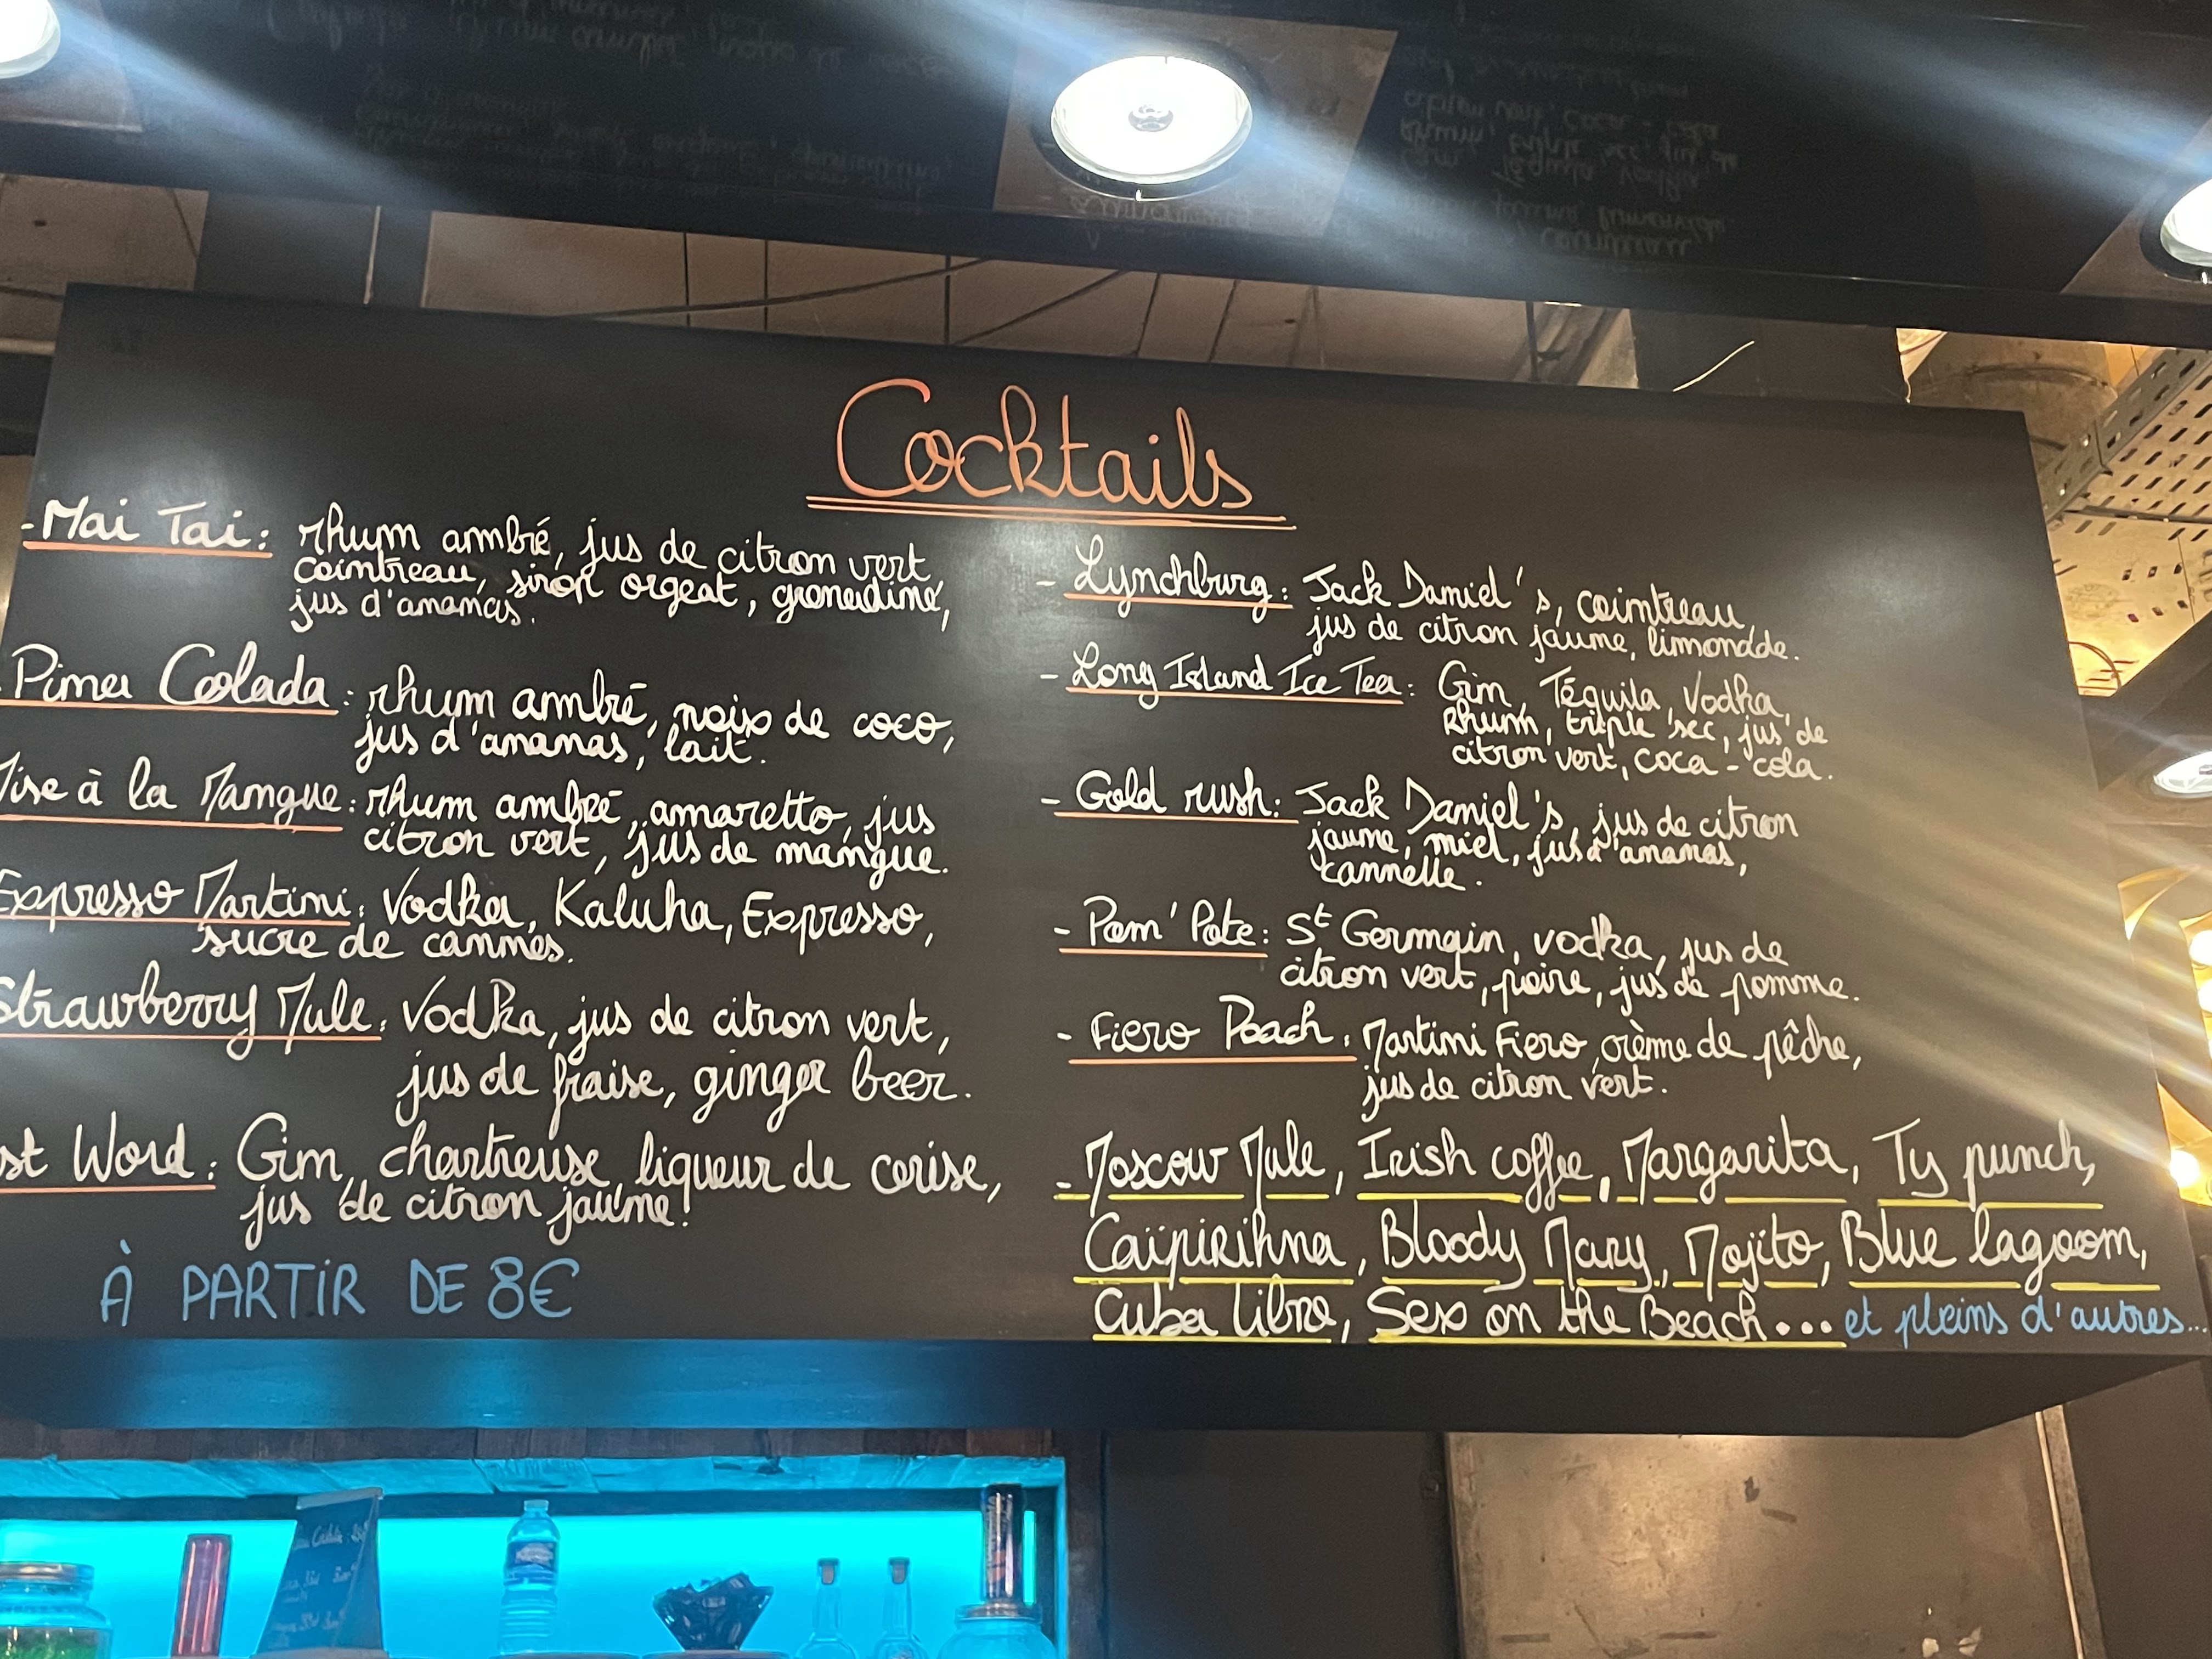 Cocktails
- Mai Tai : rhum ambré, jus de citron vert,
cointreau, sirop orgeat, grenadine,
jus d'ananas.
Pina Colada : rhum ambré, noix de coco,
jus d'ananas, lait.
Mise à la Mangue : rhum ambré, amaretto, jus
citron vert, jus de mangue.
Expresso Martini : Vodka, Kaluha, Expresso,
sucre de cannes.
Strawberry Mule : Vodka, jus de citron vert,
jus de fraise, ginger beer.
st Word : Gin, chartreuse, liqueur de cerise,
jus de citron jaune!
À PARTIR DE 8€
- Lynchburg : Jack Daniel's, cointreau,
jus de citron jaune, limonade.
- Long Island Ice Tea : Gin, Téquila, Vodka,
Rhum, triple sec, jus de
citron vert, coca-cola.
- Gold rush : Jack Daniel's, jus de citron
jaune, miel, jus d'ananas,
cannelle.
- Pom' Pote : St Germain, vodka, jus de
citron vert, poire, jus de pomme.
- Fiero Peach : Martini Fiero, crème de pêche,
jus de citron vert.
- Moscow Mule, Irish coffee, Margarita, Ty punch,
Caïpirihna, Bloody Mary, Mojito, Blue lagoon,
Cuba libre, Sex on the Beach... et pleins d'autres...